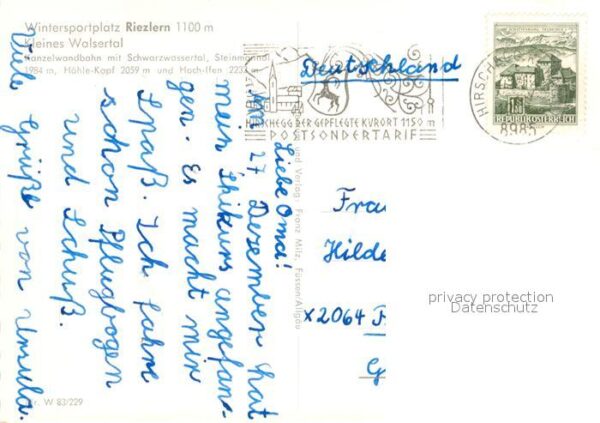 Wintersportplatz Riezlern 1100 m
Kleines Walsertal
Kanzelwandbahn mit Schwarzwassertal, Steinmandl
1984 m, Hähle-Kopf 2059 m und Hoch-Ifen 2232 m
HIRSCHEGG DER GEPFLEGTE KURORT 1150 m
POSTSONDERTARIF
HIRSCHE
8985
REPUBLIK ÖSTERREICH
Deutschland
Liebe Oma!
Am 27. Dezember hat
mein Skikurs angefan-
gen. Es macht mir
Spaß. Ich fahre
schon Pflugbogen
und Schuß.
Viele Grüße von Ursula.
und Verlag: Franz Milz, Füssen/Allgäu
Frau
Hilde
x2064
privacy protection
Datenschutz
Nr. W 83/229